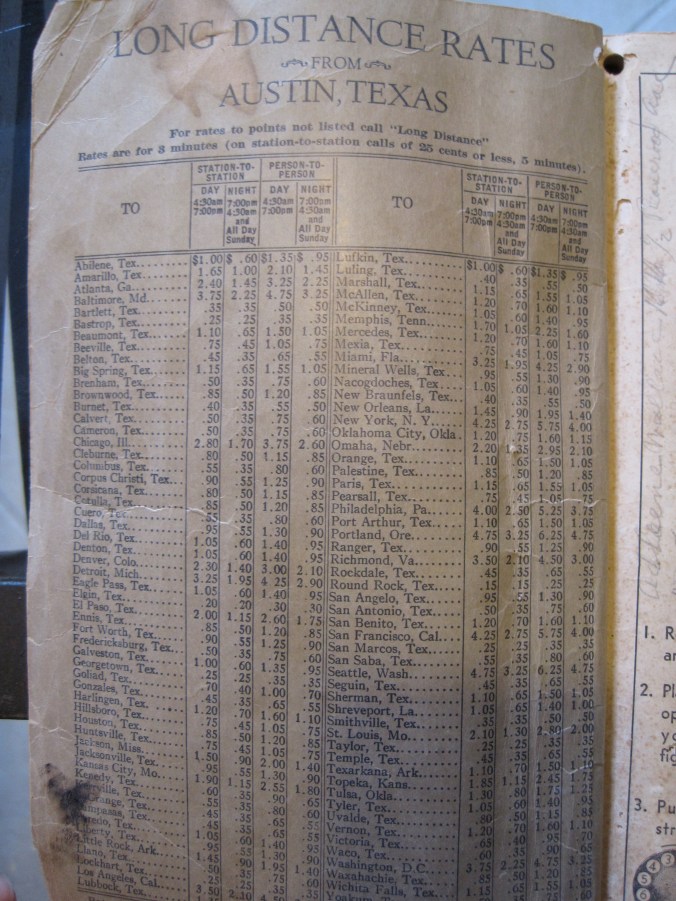 LONG DISTANCE RATES
FROM
AUSTIN, TEXAS
For rates to points not listed call "Long Distance"
Rates are for 3 minutes (on station-to-station calls of 25 cents or less, 5 minutes).
TO
STATION-TO-STATION
PERSON-TO-PERSON
DAY 4:30am 7:00pm
NIGHT 7:00pm 4:30am and All Day Sunday
DAY 4:30am 7:00pm
NIGHT 7:00pm 4:30am and All Day Sunday
Abilene, Tex. $1.00 $ .60 $1.35 $ .95
Amarillo, Tex. 1.65 1.00 2.10 1.45
Atlanta, Ga. 2.40 1.45 3.25 2.25
Baltimore, Md. 3.75 2.25 4.75 3.25
Bartlett, Tex. .35 .35 .50 .50
Bastrop, Tex. .25 .25 .35 .35
Beaumont, Tex. 1.10 .65 1.50 1.05
Beeville, Tex. .75 .45 1.05 .75
Belton, Tex. .45 .35 .65 .55
Big Spring, Tex. 1.15 .65 1.55 1.05
Brenham, Tex. .50 .35 .75 .60
Brownwood, Tex. .85 .50 1.20 .85
Burnet, Tex. .40 .35 .55 .50
Calvert, Tex. .50 .35 .75 .60
Cameron, Tex. .50 .35 .75 .60
Chicago, Ill. 2.80 1.70 3.75 2.60
Cleburne, Tex. .80 .50 1.15 .85
Columbus, Tex. .55 .35 .80 .60
Corpus Christi, Tex. .90 .55 1.25 .90
Corsicana, Tex. .80 .50 1.15 .85
Cotulla, Tex. .85 .50 1.20 .85
Cuero, Tex. .55 .35 .80 .60
Dallas, Tex. .95 .55 1.30 .90
Del Rio, Tex. 1.05 .60 1.40 .95
Denton, Tex. 1.05 .60 1.40 .95
Denver, Colo. 2.30 1.40 3.00 2.10
Detroit, Mich. 3.25 1.95 4.25 2.90
Eagle Pass, Tex. 1.05 .60 1.40 .95
Elgin, Tex. .20 .20 .30 .30
El Paso, Tex. 2.00 1.15 2.60 1.75
Ennis, Tex. .85 .50 1.20 .85
Fort Worth, Tex. .90 .55 1.25 .90
Fredericksburg, Tex. .50 .35 .75 .60
Galveston, Tex. 1.00 .60 1.35 .95
Georgetown, Tex.
Goliad, Tex. .70 .40 1.00 .70
Gonzales, Tex. .45 .35 .65 .55
Harlingen, Tex. 1.20 .70 1.60 1.10
Hillsboro, Tex. .75 .45 1.05 .75
Houston, Tex. .85 .50 1.20 .85
Huntsville, Tex. .75 .45 1.05 .75
Jackson, Miss. 1.50 .90 2.00 1.40
Jacksonville, Tex. .95 .55 1.30 .90
Kansas City, Mo. 1.90 1.15 2.55 1.80
Kenedy, Tex. .60 .35 .90 .65
Tex. .55 .35 .80 .60
Tex. .45 .35 .65 .55
Tex. .45 .35 .65 .55
Tex. 1.05 .60 1.40 .95
Tex. .95 .55 1.30 .90
Little Rock, Ark. 1.45 .90 1.95 1.40
Llano, Tex. .50 .35 .75 .60
Lockhart, Tex. .25 .25 .35 .35
Los Angeles, Cal. 3.50 2.10 4.50
Lubbock, Tex.
TO
STATION-TO-STATION
PERSON-TO-PERSON
DAY 4:30am 7:00pm
NIGHT 7:00pm 4:30am and All Day Sunday
DAY 4:30am 7:00pm
NIGHT 7:00pm 4:30am and All Day Sunday
Lufkin, Tex. $1.00 $ .60 $1.35 $ .95
Luling, Tex. .40 .35 .55 .50
Marshall, Tex. 1.15 .65 1.55 1.05
McAllen, Tex. 1.20 .70 1.60 1.10
McKinney, Tex. 1.05 .60 1.40 .95
Memphis, Tenn. 1.70 1.05 2.25 1.60
Mercedes, Tex. 1.20 .70 1.60 1.10
Mexia, Tex. .75 .45 1.05 .75
Miami, Fla. 3.25 1.95 4.25 2.90
Mineral Wells, Tex. .95 .55 1.30 .90
Nacogdoches, Tex. 1.05 .60 1.40 .95
New Braunfels, Tex. .40 .35 .55 .50
New Orleans, La. 1.45 .90 1.95 1.40
New York, N. Y. 4.25 2.75 5.75 4.00
Oklahoma City, Okla. 1.20 .75 1.60 1.15
Omaha, Nebr. 2.20 1.35 2.95 2.10
Orange, Tex. 1.10 .65 1.50 1.05
Palestine, Tex. .85 .50 1.20 .85
Paris, Tex. 1.15 .65 1.55 1.05
Pearsall, Tex. .75 .45 1.05 .75
Philadelphia, Pa. 4.00 2.50 5.25 3.75
Port Arthur, Tex. 1.10 .65 1.50 1.05
Portland, Ore. 4.75 3.25 6.25 4.75
Ranger, Tex. .90 .55 1.25 .90
Richmond, Va. 3.50 2.10 4.50 3.00
Rockdale, Tex. .45 .35 .65 .55
Round Rock, Tex. .15 .15 .25 .25
San Angelo, Tex. .95 .55 1.30 .90
San Antonio, Tex. .50 .35 .75 .60
San Benito, Tex. 1.20 .70 1.60 1.10
San Francisco, Cal. 4.25 2.75 5.75 4.00
San Marcos, Tex. .25 .25 .35 .35
San Saba, Tex. .55 .35 .80 .60
Seattle, Wash. 4.75 3.25 6.25 4.75
Seguin, Tex. .45 .35 .65 .55
Sherman, Tex. 1.10 .65 1.50 1.05
Shreveport, La. 1.05 .65 1.40 1.00
Smithville, Tex. .35 .35 .50 .50
St. Louis, Mo. 2.10 1.30 2.80 2.00
Taylor, Tex. .25 .25 .35 .35
Temple, Tex. .45 .35 .65 .55
Texarkana, Ark. 1.10 .70 1.50 1.10
Topeka, Kans. 1.85 1.15 2.45 1.75
Tulsa, Okla. 1.30 .80 1.75 1.25
Tyler, Tex. 1.05 .60 1.40 .95
Uvalde, Tex. .80 .50 1.15 .85
Vernon, Tex. 1.20 .70 1.60 1.10
Victoria, Tex. .65 .40 .95 .70
Waco, Tex. .60 .35 .90 .65
Washington, D.C. 3.75 2.25 4.75 3.25
Waxahachie, Tex. .85 .50 1.20 .85
Wichita Falls, Tex. 1.15 .65 1.55 1.05
Yoakum, Tex.
1. R
2. Pl
3. Pu